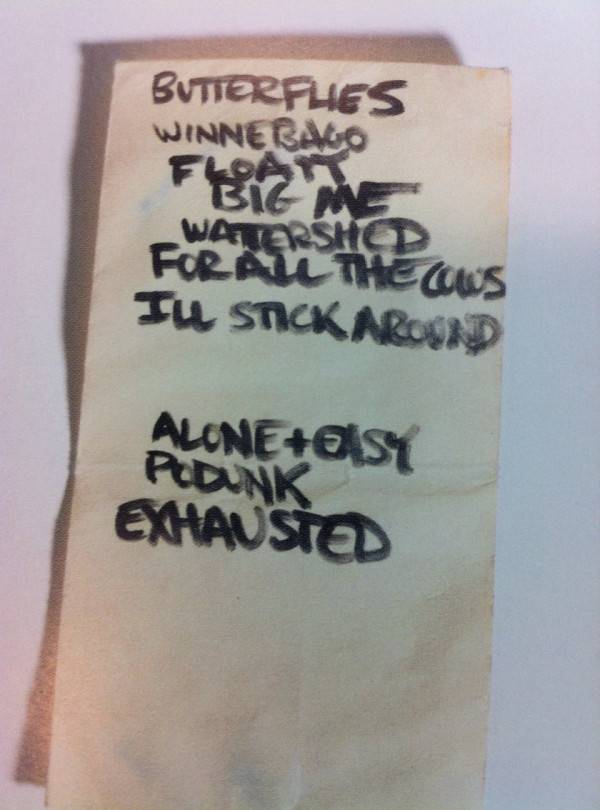 BUTTERFLIES
WINNEBAGO
FLOATY
BIG ME
WATTERSHED
FOR ALL THE COWS
ILL STICK AROUND
ALONE + EASY
PODUNK
EXHAUSTED